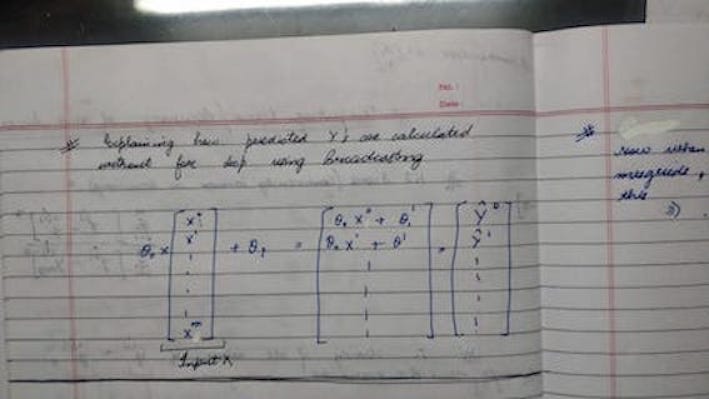 No. :
Date
* Explaining how predicted Y's are calculated
without for loop using Broadcasting
θ₀ x [ x⁰ x¹ xᵐ ] + θ₁ = [ θ₀ x⁰ + θ₁ θ₀ x¹ + θ¹ ] = [ Ŷ⁰ ŷ¹ ]
Input X
* now when
this